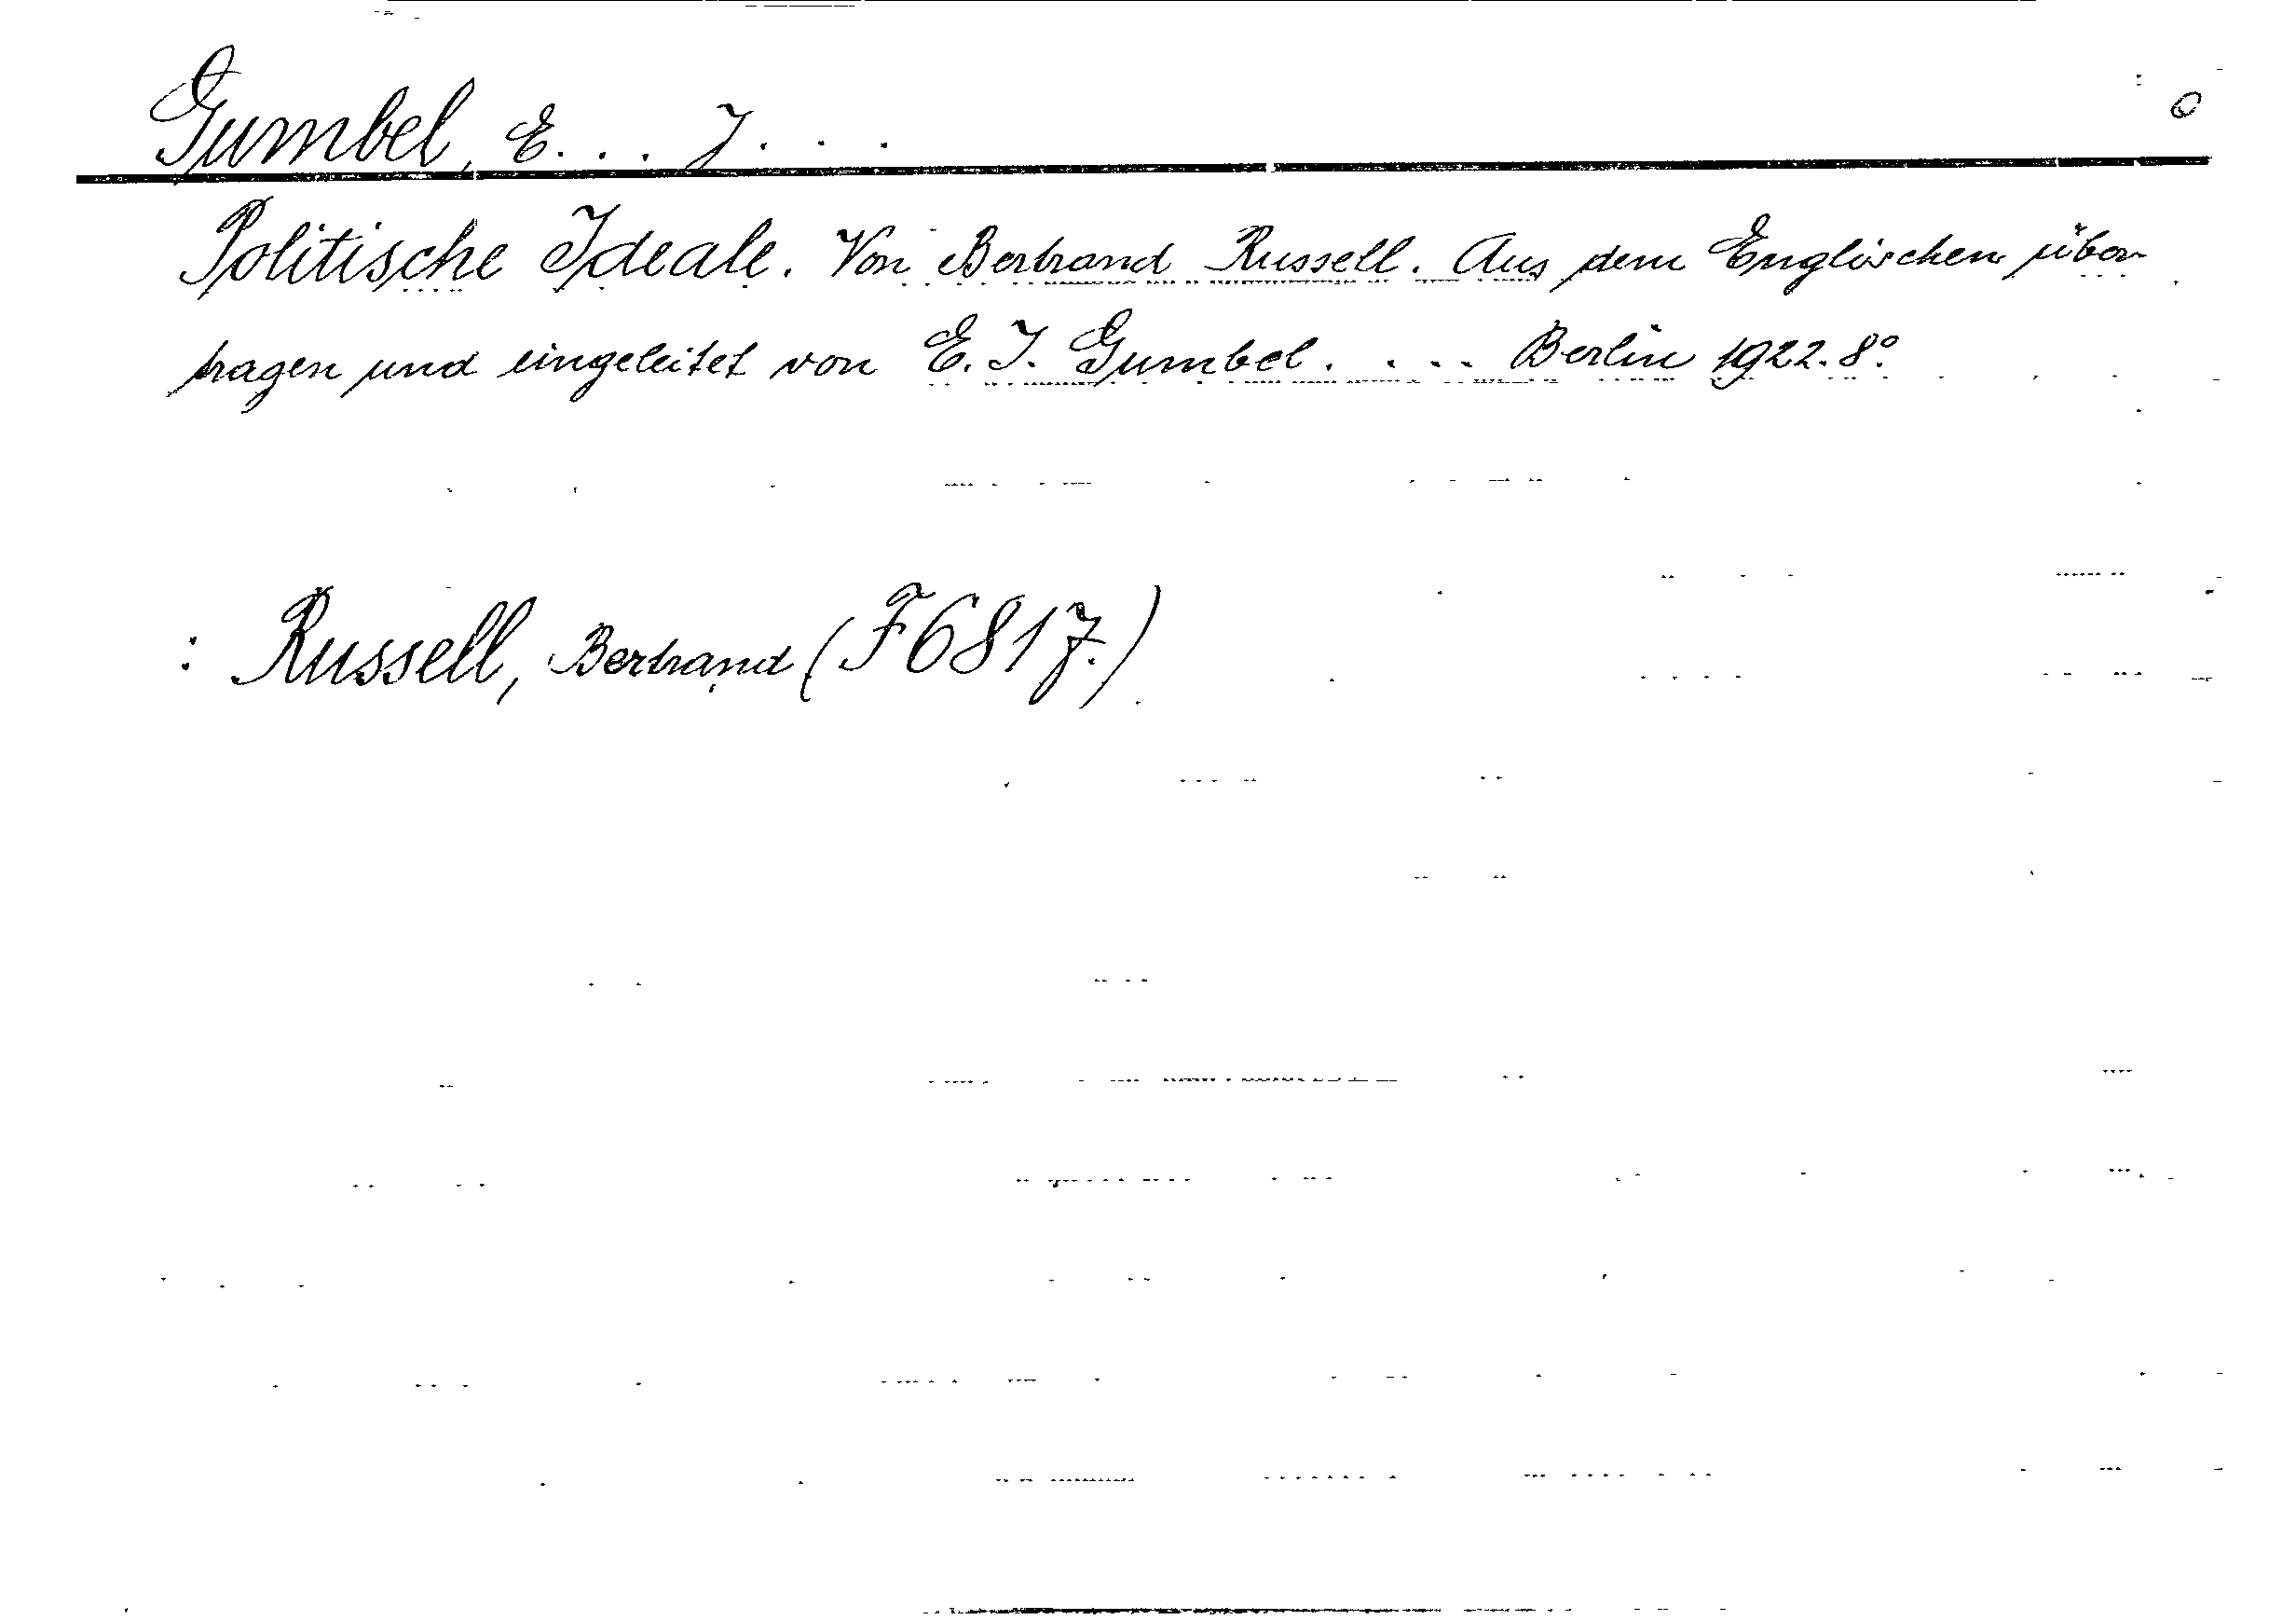 Gumbel, E. . . J. . .
Politische Ideale. Von Bertrand Russell. Aus dem Englischen über
tragen und eingeleitet von E. J. Gumbel. . . . Berlin 1922. 8°.
: Russell, Bertrand (F6817.)